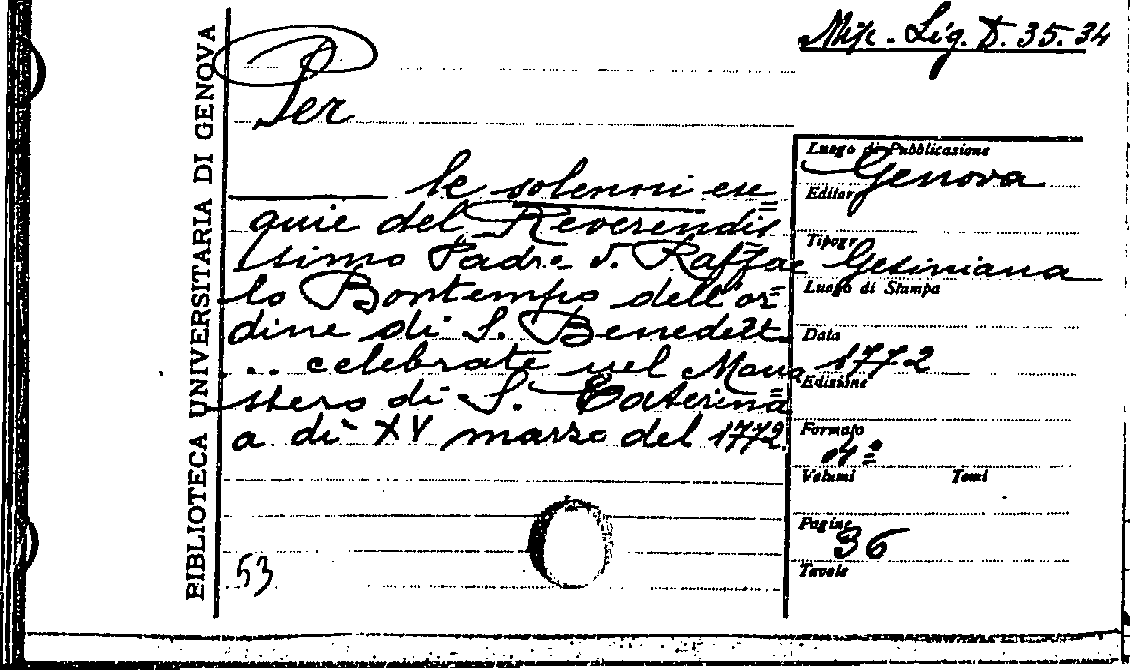 BIBLIOTECA UNIVERSITARIA DI GENOVA
Misc. Lig. D. 35. 34
Per
le solenni ese=
quie del Reverendis
simo Padre D. Raffae
lo Bontempo dell'or=
dine di S. Benedett
... celebrate nel Mona
stero di S. Caterina
a dì XV marzo del 1772.
53
Luogo di Pubblicazione
Genova
Editore
Tipogr.
Gesiniana
Luogo di Stampa
Data
1772
Edizione
Formato
4º
Volumi Tomi
Pagine
36
Tavole